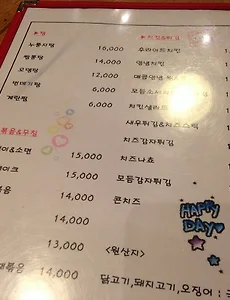 ▶탕
▶치킨&튀김
누룽지탕 16,000
후라이드치킨
짬뽕탕 14,000
양념치킨
오뎅탕 12,000
번데기탕 6,000
계란찜 6,000
치킨샐러드
새우튀김&치즈스틱
치즈감자튀김
볶음&무침
이&소면 15,000
치즈나쵸
15,000
모듬감자튀김
볶음 14,000
콘치즈
14,000
13,000
<원산지>
14,000
닭고기,돼지고기,오징어 :
HAPPY
DAY